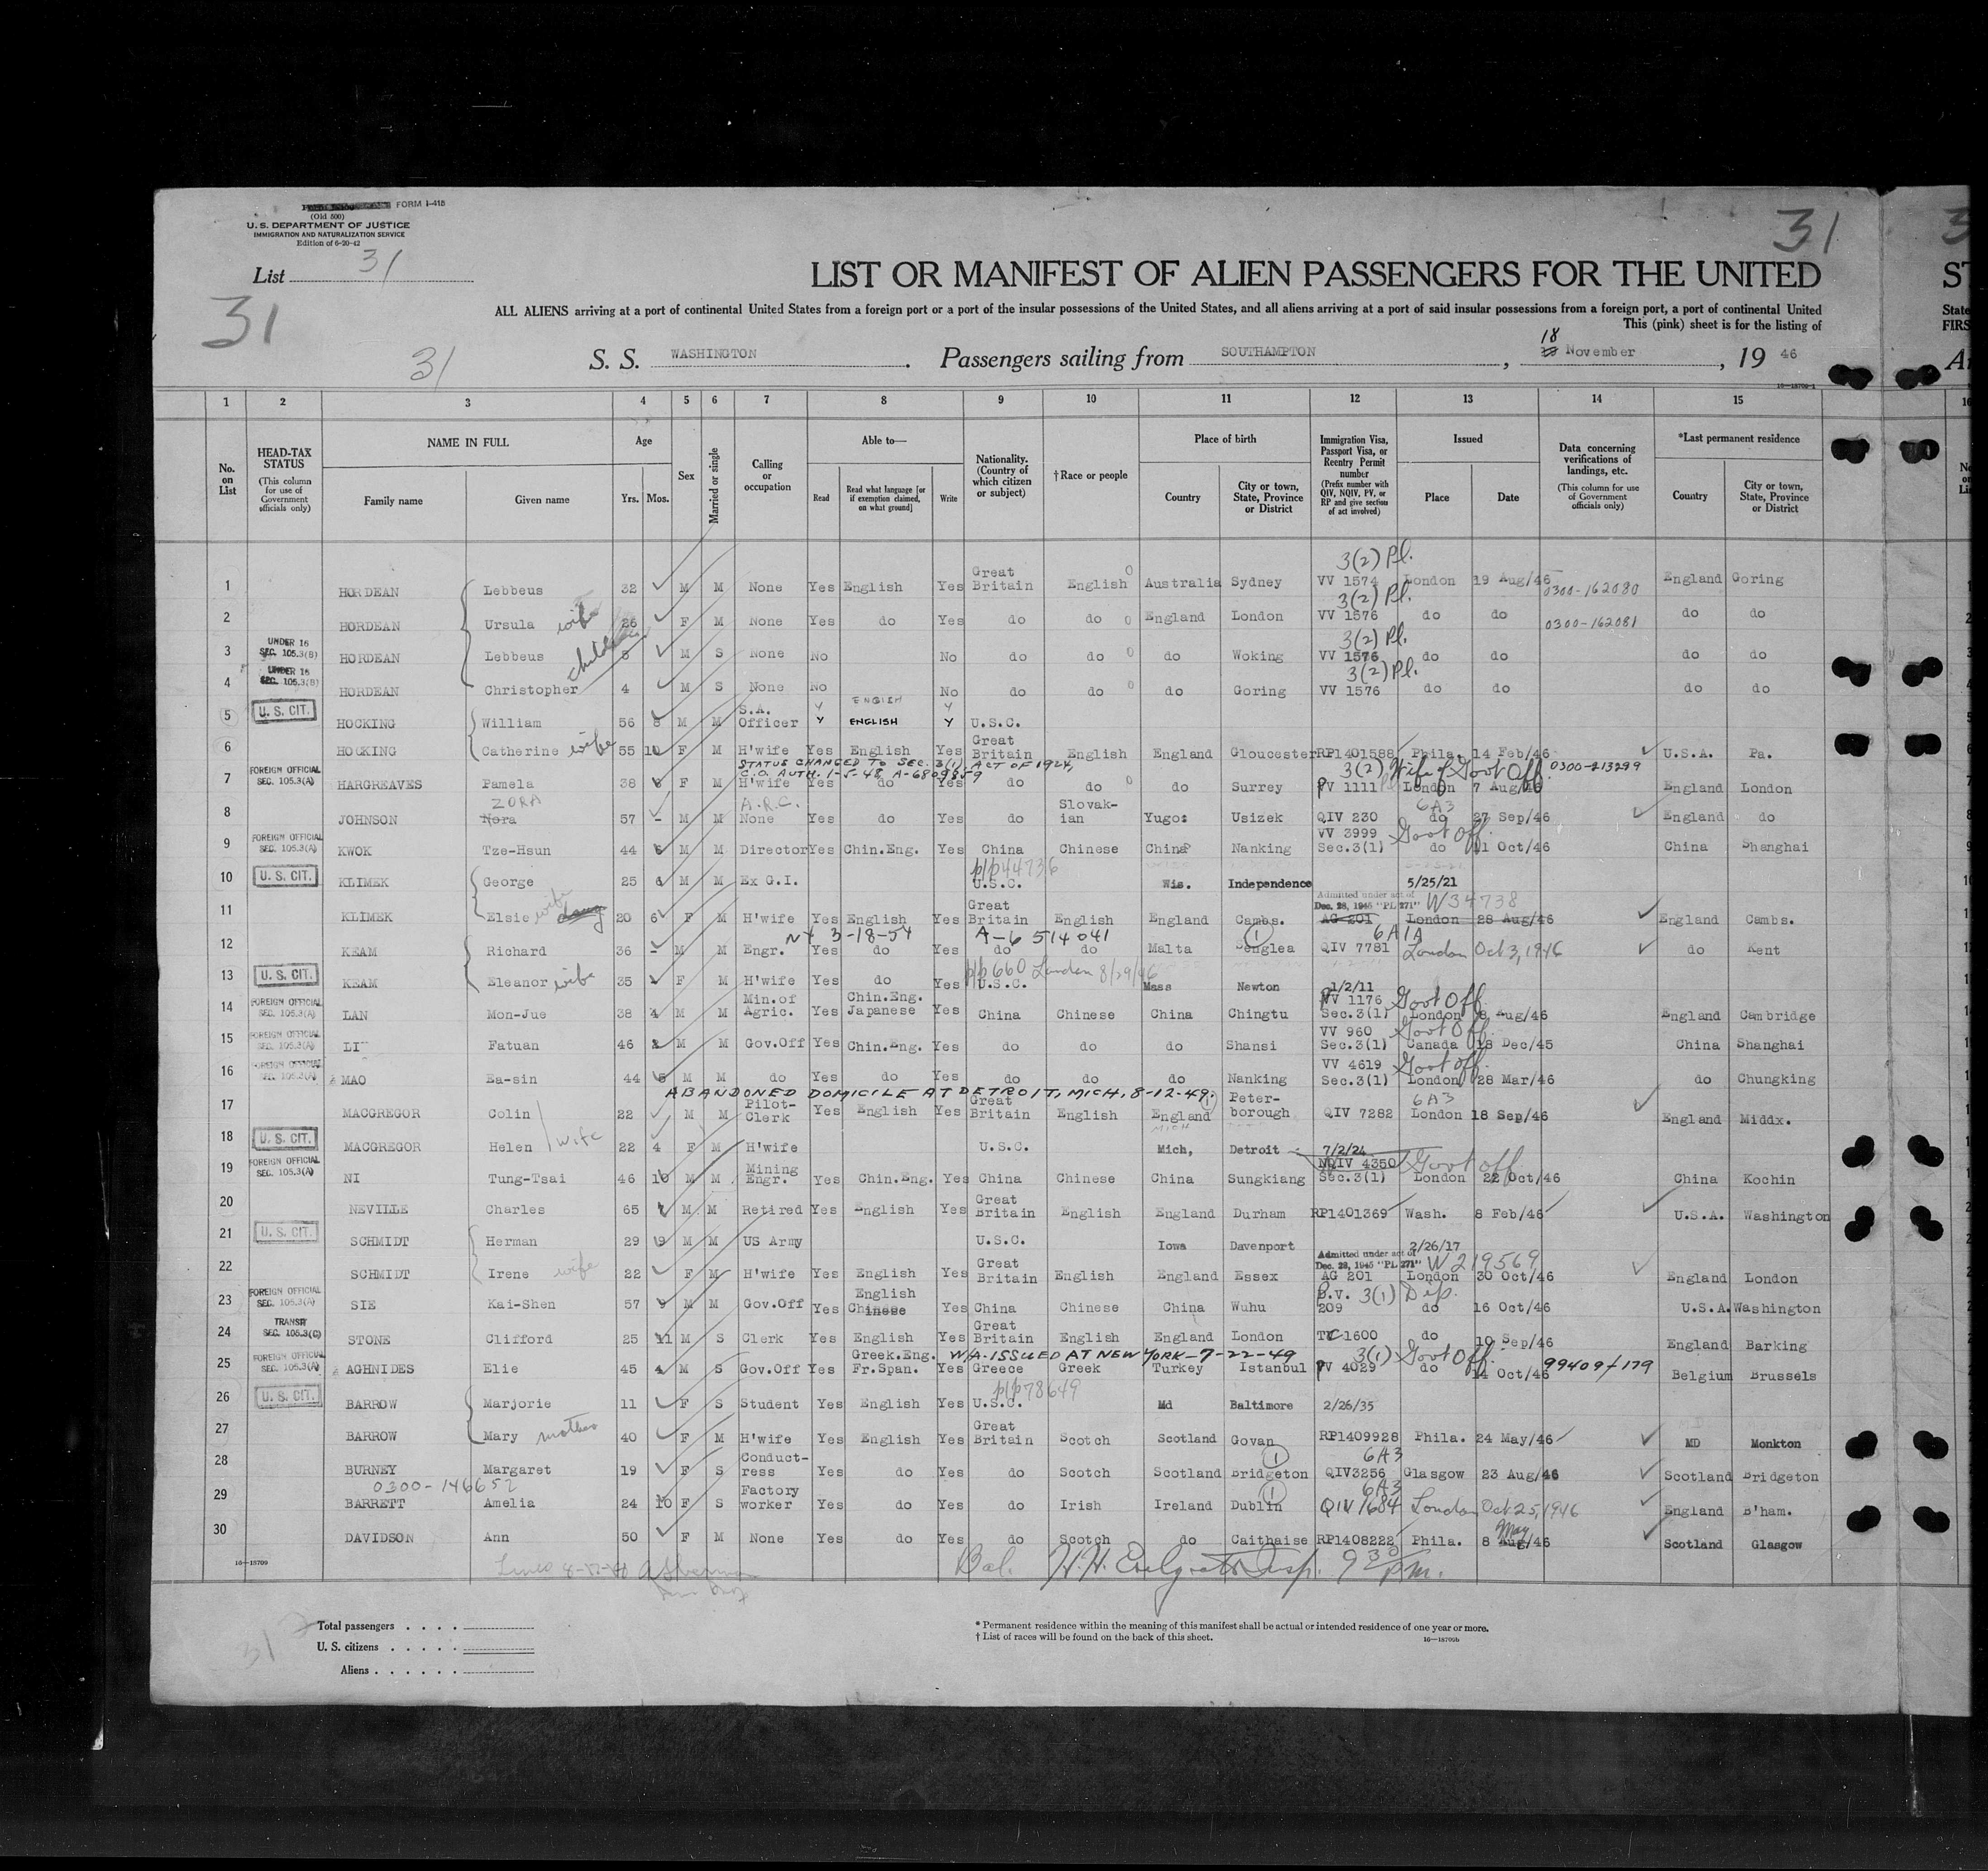 FORM I-415
(Old 500)
U. S. DEPARTMENT OF JUSTICE
IMMIGRATION AND NATURALIZATION SERVICE
Edition of 6-20-42
List 31
31
31
31
LIST OR MANIFEST OF ALIEN PASSENGERS FOR THE UNITED
ST
ALL ALIENS arriving at a port of continental United States from a foreign port or a port of the insular possessions of the United States, and all aliens arriving at a port of said insular possessions from a foreign port, a port of continental United
State
This (pink) sheet is for the listing of
FIRS
S. S. WASHINGTON. Passengers sailing from SOUTHAMPTON, 18 November, 19 46
16—18709-1
1 2 3 4 5 6 7 8 9 10 11 12 13 14 15
No. on List
HEAD-TAX STATUS (This column for use of Government officials only)
NAME IN FULL
Family name Given name
Age
Yrs. Mos.
Sex
Married or single
Calling or occupation
Able to—
Read
Read what language [or if exemption claimed, on what ground]
Write
Nationality. (Country of which citizen or subject)
†Race or people
Place of birth
Country
City or town, State, Province or District
Immigration Visa, Passport Visa, or Reentry Permit number (Prefix number with QIV, NQIV, PV, or RP and give section of act involved)
Issued
Place Date
Data concerning verifications of landings, etc. (This column for use of Government officials only)
*Last permanent residence
Country
City or town, State, Province or District
3(2) Pl.
1 HORDEAN Lebbeus 32 M M None Yes English Yes Great Britain English Australia Sydney VV 1574 London 19 Aug/46 0300-162080 England Goring
3(2) Pl.
2 HORDEAN Ursula wife 26 F M None Yes do Yes do do England London VV 1576 do do 0300-162081 do do
3(2) Pl.
3 UNDER 16 SEC. 105.3(B) HORDEAN Lebbeus children M S None No No do do do Woking VV 1576 do do do do
3(2) Pl.
4 UNDER 16 SEC. 105.3(B) HORDEAN Christopher 4 M S None No No do do do Goring VV 1576 do do do do
5 U. S. CIT. HOCKING William 56 8 M M S.A. Officer Y ENGLISH Y U.S.C.
6 HOCKING Catherine wife 55 10 F M H'wife Yes English Yes Great Britain English England Gloucester RP1401588 Phila. 14 Feb/46 U.S.A. Pa.
STATUS CHANGED TO SEC. 3(1) ACT OF 1924, C.O. AUTH. 1-5-48 A-6809859
3(2) Wife of Govt Off. 0300-213299
7 FOREIGN OFFICIAL SEC. 105.3(A) HARGREAVES Pamela 38 F M H'wife Yes do Yes do do do Surrey PV 1111 London 7 Aug/46 England London
ZORA A.R.C. 6A3
8 JOHNSON Nora 57 - M M None Yes do Yes do Slovak-ian Yugo: Usizek QIV 230 do 27 Sep/46 England do
9 FOREIGN OFFICIAL SEC. 105.3(A) KWOK Tze-Hsun 44 6 M M Director Yes Chin.Eng. Yes China Chinese China Nanking VV 3999 Sec.3(1) Govt Off. do 11 Oct/46 China Shanghai
p/p44736
10 U. S. CIT. KLIMEK George 25 6 M M Ex G.I. U.S.C. Wis. Independence 5/25/21
Admitted under act of Dec. 28, 1945 "PL 271" W34738
11 KLIMEK Elsie wife 20 6 F M H'wife Yes English Yes Great Britain English England Cambs. AG 201 London 28 Aug/46 England Cambs.
NY 3-18-54 A-6 514 041 6A1A
12 KEAM Richard 36 - M M Engr. Yes do Yes do do Malta Senglea QIV 7781 London Oct 3, 1946 do Kent
p/p660 London 8/29/46
13 U. S. CIT. KEAM Eleanor wife 35 F M H'wife Yes do Yes U.S.C. Mass Newton 1/2/11
14 FOREIGN OFFICIAL SEC. 105.3(A) LAN Mon-Jue 38 4 M M Min.of Agric. Yes Chin.Eng. Japanese Yes China Chinese China Chingtu PV 1176 Sec.3(1) Govt Off. London 8 Aug/46 England Cambridge
15 FOREIGN OFFICIAL SEC. 105.3(A) LI Fatuan 46 2 M M Gov.Off Yes Chin.Eng. Yes do do do Shansi VV 960 Sec.3(1) Govt Off. Canada 18 Dec/45 China Shanghai
16 FOREIGN OFFICIAL SEC. 105.3(A) MAO Ea-sin 44 5 M M do Yes do Yes do do do Nanking VV 4619 Sec.3(1) Govt Off. London 28 Mar/46 do Chungking
ABANDONED DOMICILE AT DETROIT, MICH, 8-12-49.
6A3
17 MACGREGOR Colin 22 M M Pilot-Clerk Yes English Yes Great Britain English England Peter-borough QIV 7282 London 18 Sep/46 England Middx.
18 U. S. CIT. MACGREGOR Helen wife 22 4 F M H'wife U.S.C. Mich, Detroit 7/2/24
19 FOREIGN OFFICIAL SEC. 105.3(A) NI Tung-Tsai 46 10 M M Mining Engr. Yes Chin.Eng. Yes China Chinese China Sungkiang NQIV 4350 Sec.3(1) Govt Off London 22 Oct/46 China Kochin
20 NEVILLE Charles 65 M M Retired Yes English Yes Great Britain English England Durham RP1401369 Wash. 8 Feb/46 U.S.A. Washington
21 U. S. CIT. SCHMIDT Herman 29 9 M M US Army U.S.C. Iowa Davenport 2/26/17
Admitted under act of Dec. 28, 1945 "PL 271" W219569
22 SCHMIDT Irene wife 22 F M H'wife Yes English Yes Great Britain English England Essex AG 201 London 30 Oct/46 England London
23 FOREIGN OFFICIAL SEC. 105.3(A) SIE Kai-Shen 57 9 M M Gov.Off Yes English Chinese Yes China Chinese China Wuhu P.V. 209 3(1) Dip. do 16 Oct/46 U.S.A. Washington
24 TRANSIT SEC. 105.3(C) STONE Clifford 25 11 M S Clerk Yes English Yes Great Britain English England London TC 1600 do 10 Sep/46 England Barking
W/A ISSUED AT NEW YORK-7-22-49 3(1) Govt Off.
25 FOREIGN OFFICIAL SEC. 105.3(A) AGHNIDES Elie 45 4 M S Gov.Off Yes Greek.Eng. Fr.Span. Yes Greece Greek Turkey Istanbul PV 4029 do 14 Oct/46 99409/179 Belgium Brussels
p/p78649
26 U. S. CIT. BARROW Marjorie 11 F S Student Yes English Yes U.S.C. Md Baltimore 2/26/35
27 BARROW Mary mother 40 F M H'wife Yes English Yes Great Britain Scotch Scotland Govan RP1409928 Phila. 24 May/46 MD Monkton
6A3
28 BURNEY Margaret 19 F S Conduct-ress Yes do Yes do Scotch Scotland Bridgeton QIV3256 Glasgow 23 Aug/46 Scotland Bridgeton
0300-146652 6A3
29 BARRETT Amelia 24 10 F S Factory worker Yes do Yes do Irish Ireland Dublin QIV 1684 London Oct 25, 1946 England B'ham.
30 DAVIDSON Ann 50 F M None Yes do Yes do Scotch do Caithaise RP1408222 Phila. 8 May Aug/46 Scotland Glasgow
16—18709
Bal. 9 30 p.m.
Total passengers . . . .
U. S. citizens . . . . .
Aliens . . . . . .
* Permanent residence within the meaning of this manifest shall be actual or intended residence of one year or more.
† List of races will be found on the back of this sheet.
16—18709b